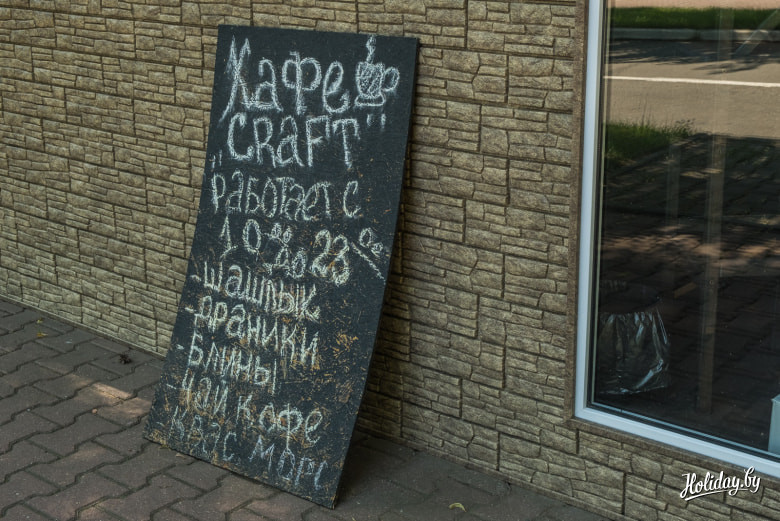 Кафе
"CRAFT"
Работает с
10⁰⁰ до 23⁰⁰
-шашлык
-драники
-блины
-чай кофе
-квас морс
Holiday.by